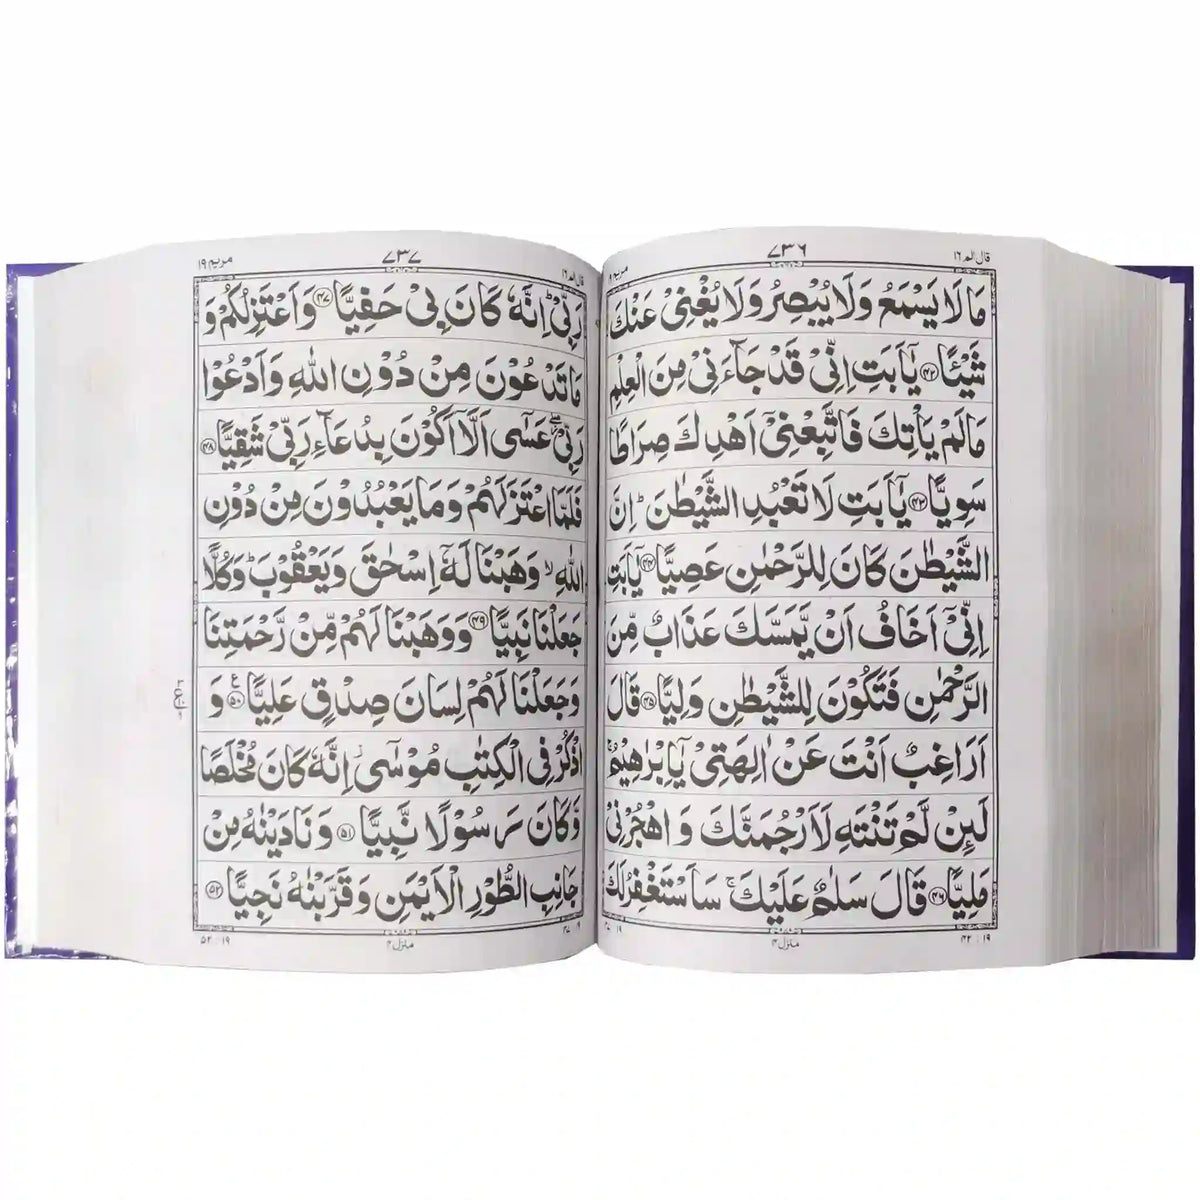 قال الم ۱٦
۷۳٦
مريم ۱۹
مَا لَا يَسْمَعُ وَلَا يُبْصِرُ وَلَا يُغْنِىْ عَنْكَ
شَيْئًا ﴿۴۲﴾ يٰۤاَبَتِ اِنِّىْ قَدْ جَآءَنِىْ مِنَ الْعِلْمِ
مَا لَمْ يَاْتِكَ فَاتَّبِعْنِىْۤ اَهْدِكَ صِرَاطًا
سَوِيًّا ﴿۴۳﴾ يٰۤاَبَتِ لَا تَعْبُدِ الشَّيْطٰنَ ؕ اِنَّ
الشَّيْطٰنَ كَانَ لِلرَّحْمٰنِ عَصِيًّا ﴿۴۴﴾ يٰۤاَبَتِ
اِنِّىْۤ اَخَافُ اَنْ يَّمَسَّكَ عَذَابٌ مِّنَ
الرَّحْمٰنِ فَتَكُوْنَ لِلشَّيْطٰنِ وَلِيًّا ﴿۴۵﴾ قَالَ
اَرَاغِبٌ اَنْتَ عَنْ اٰلِهَتِىْ يٰۤاِبْرٰهِيْمُ ۚ
لَئِنْ لَّمْ تَنْتَهِ لَاَرْجُمَنَّكَ وَاهْجُرْنِىْ
مَلِيًّا ﴿۴٦﴾ قَالَ سَلٰمٌ عَلَيْكَ ۚ سَاَسْتَغْفِرُ لَكَ
۱۹ : ۴۲
منزل ۴
۱۹ : ۴۷
قال الم ۱٦
۷۳۷
مريم ۱۹
رَبِّىْ ؕ اِنَّهٗ كَانَ بِىْ حَفِيًّا ﴿۴۷﴾ وَاَعْتَزِلُكُمْ وَ
مَا تَدْعُوْنَ مِنْ دُوْنِ اللّٰهِ وَاَدْعُوْا
رَبِّىْ ۖ عَسٰۤى اَلَّاۤ اَكُوْنَ بِدُعَآءِ رَبِّىْ شَقِيًّا ﴿۴۸﴾
فَلَمَّا اعْتَزَلَهُمْ وَمَا يَعْبُدُوْنَ مِنْ دُوْنِ
اللّٰهِ ۙ وَهَبْنَا لَهٗۤ اِسْحٰقَ وَيَعْقُوْبَ ؕ وَكُلًّا
جَعَلْنَا نَبِيًّا ﴿۴۹﴾ وَوَهَبْنَا لَهُمْ مِّنْ رَّحْمَتِنَا
وَجَعَلْنَا لَهُمْ لِسَانَ صِدْقٍ عَلِيًّا ﴿۵۰﴾ وَ
اذْكُرْ فِى الْكِتٰبِ مُوْسٰۤى اِنَّهٗ كَانَ مُخْلَصًا
وَّكَانَ رَسُوْلًا نَّبِيًّا ﴿۵۱﴾ وَنَادَيْنٰهُ مِنْ
جَانِبِ الطُّوْرِ الْاَيْمَنِ وَقَرَّبْنٰهُ نَجِيًّا ﴿۵۲﴾
۱۹ : ۴۷
منزل ۴
۱۹ : ۵۲